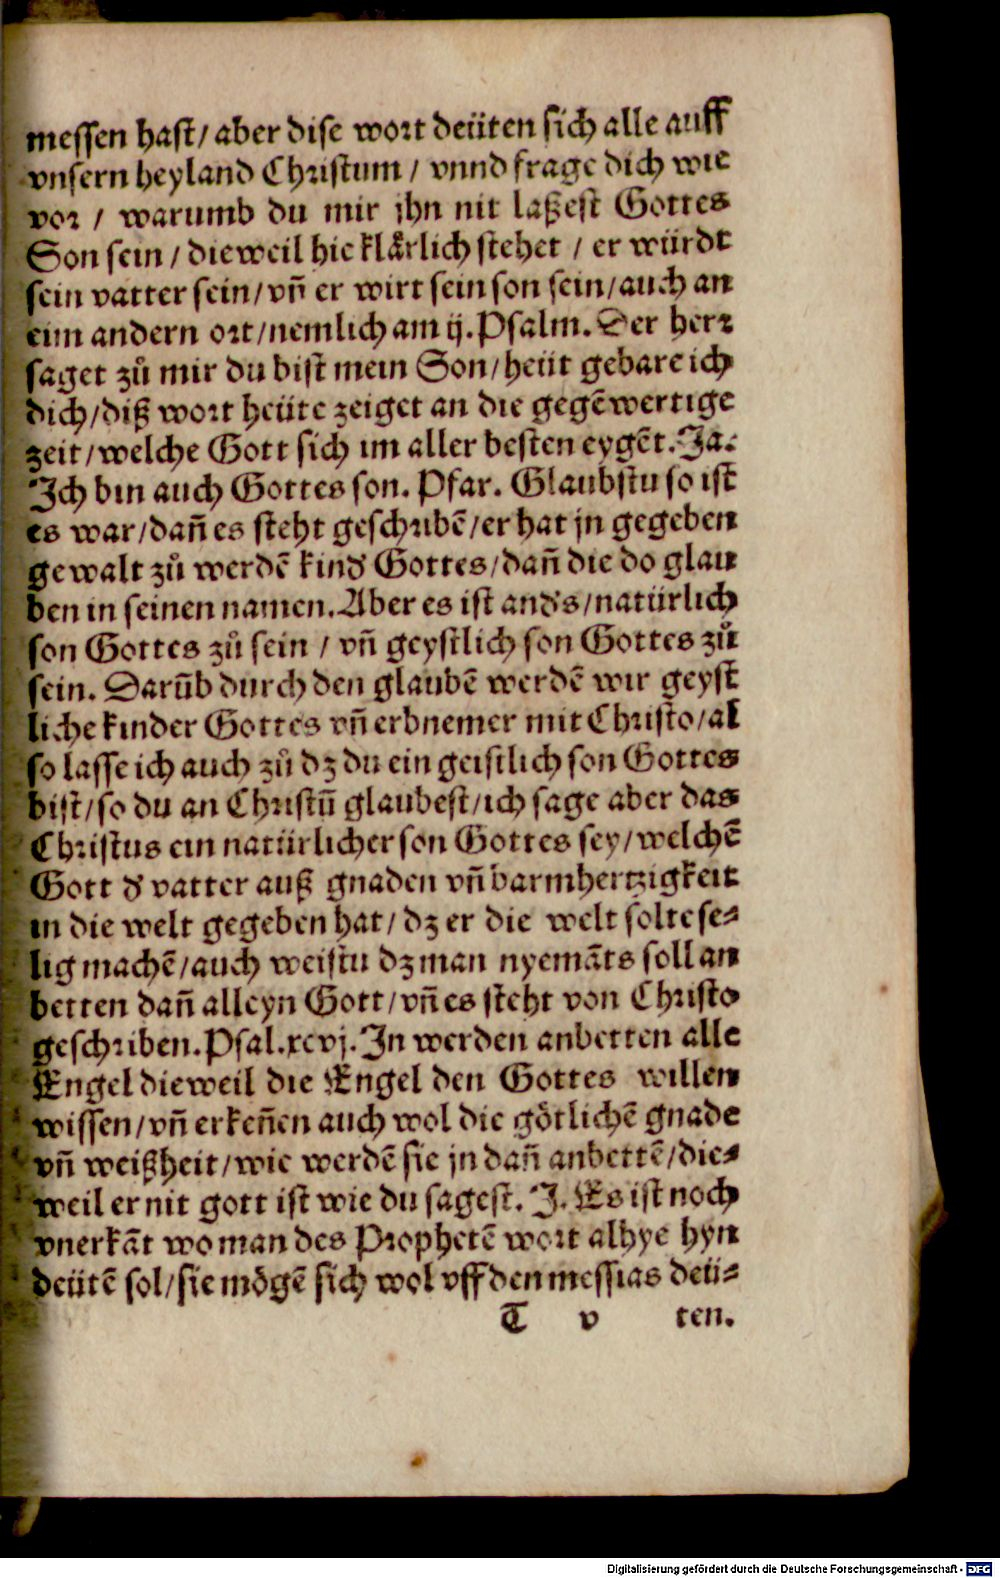 messen hast/ aber dise wort deüten sich alle auff
vnsern heyland Christum / vnnd frage dich wie
vor / warumb du mir jhn nit laßest Gottes
Son sein / dieweil hie klårlich stehet / er würdt
sein vatter sein/ vñ er wirt sein son sein/ auch an
eim andern ort/ nemlich am ij. Psalm. Der herr
saget zů mir du bist mein Son/ heüt gebare ich
dich/ diß wort heüte zeiget an die gegẽwertige
zeit/ welche Gott sich im aller besten eygẽt. Ja.
Ich bin auch Gottes son. Pfar. Glaubstu so ist
es war/ dañ es steht geschribẽ/ er hat jn gegeben
gewalt zů werdẽ kind' Gottes/ dañ die do glau
ben in seinen namen. Aber es ist and's/ natürlich
son Gottes zů sein / vñ geystlich son Gottes zů
sein. Darũb durch den glaubẽ werdẽ wir geyst
liche kinder Gottes vñ erbnemer mit Christo/ al
so lasse ich auch zů dz du ein geistlich son Gottes
bist/ so du an Christũ glaubest/ ich sage aber das
Christus ein natürlicher son Gottes sey/ welchẽ
Gott d' vatter auß gnaden vñ barmhertzigkeit
in die welt gegeben hat/ dz er die welt solte se⸗
lig machẽ/ auch weistu dz man nyemãts soll an
betten dañ alleyn Gott/ vñ es steht von Christo
geschriben. Psal. xcvj. In werden anbetten alle
Engel dieweil die Engel den Gottes willen
wissen/ vñ erkeñen auch wol die götlichẽ gnade
vñ weißheit/ wie werdẽ sie jn dañ anbettẽ/ die⸗
weil er nit gott ist wie du sagest. J. Es ist noch
vnerkãt wo man des Prophetẽ wort alhye hyn
deütẽ sol/ sie mögẽ sich wol vff den messias deü⸗
T v ten.
Digitalisierung gefördert durch die Deutsche Forschungsgemeinschaft - DFG